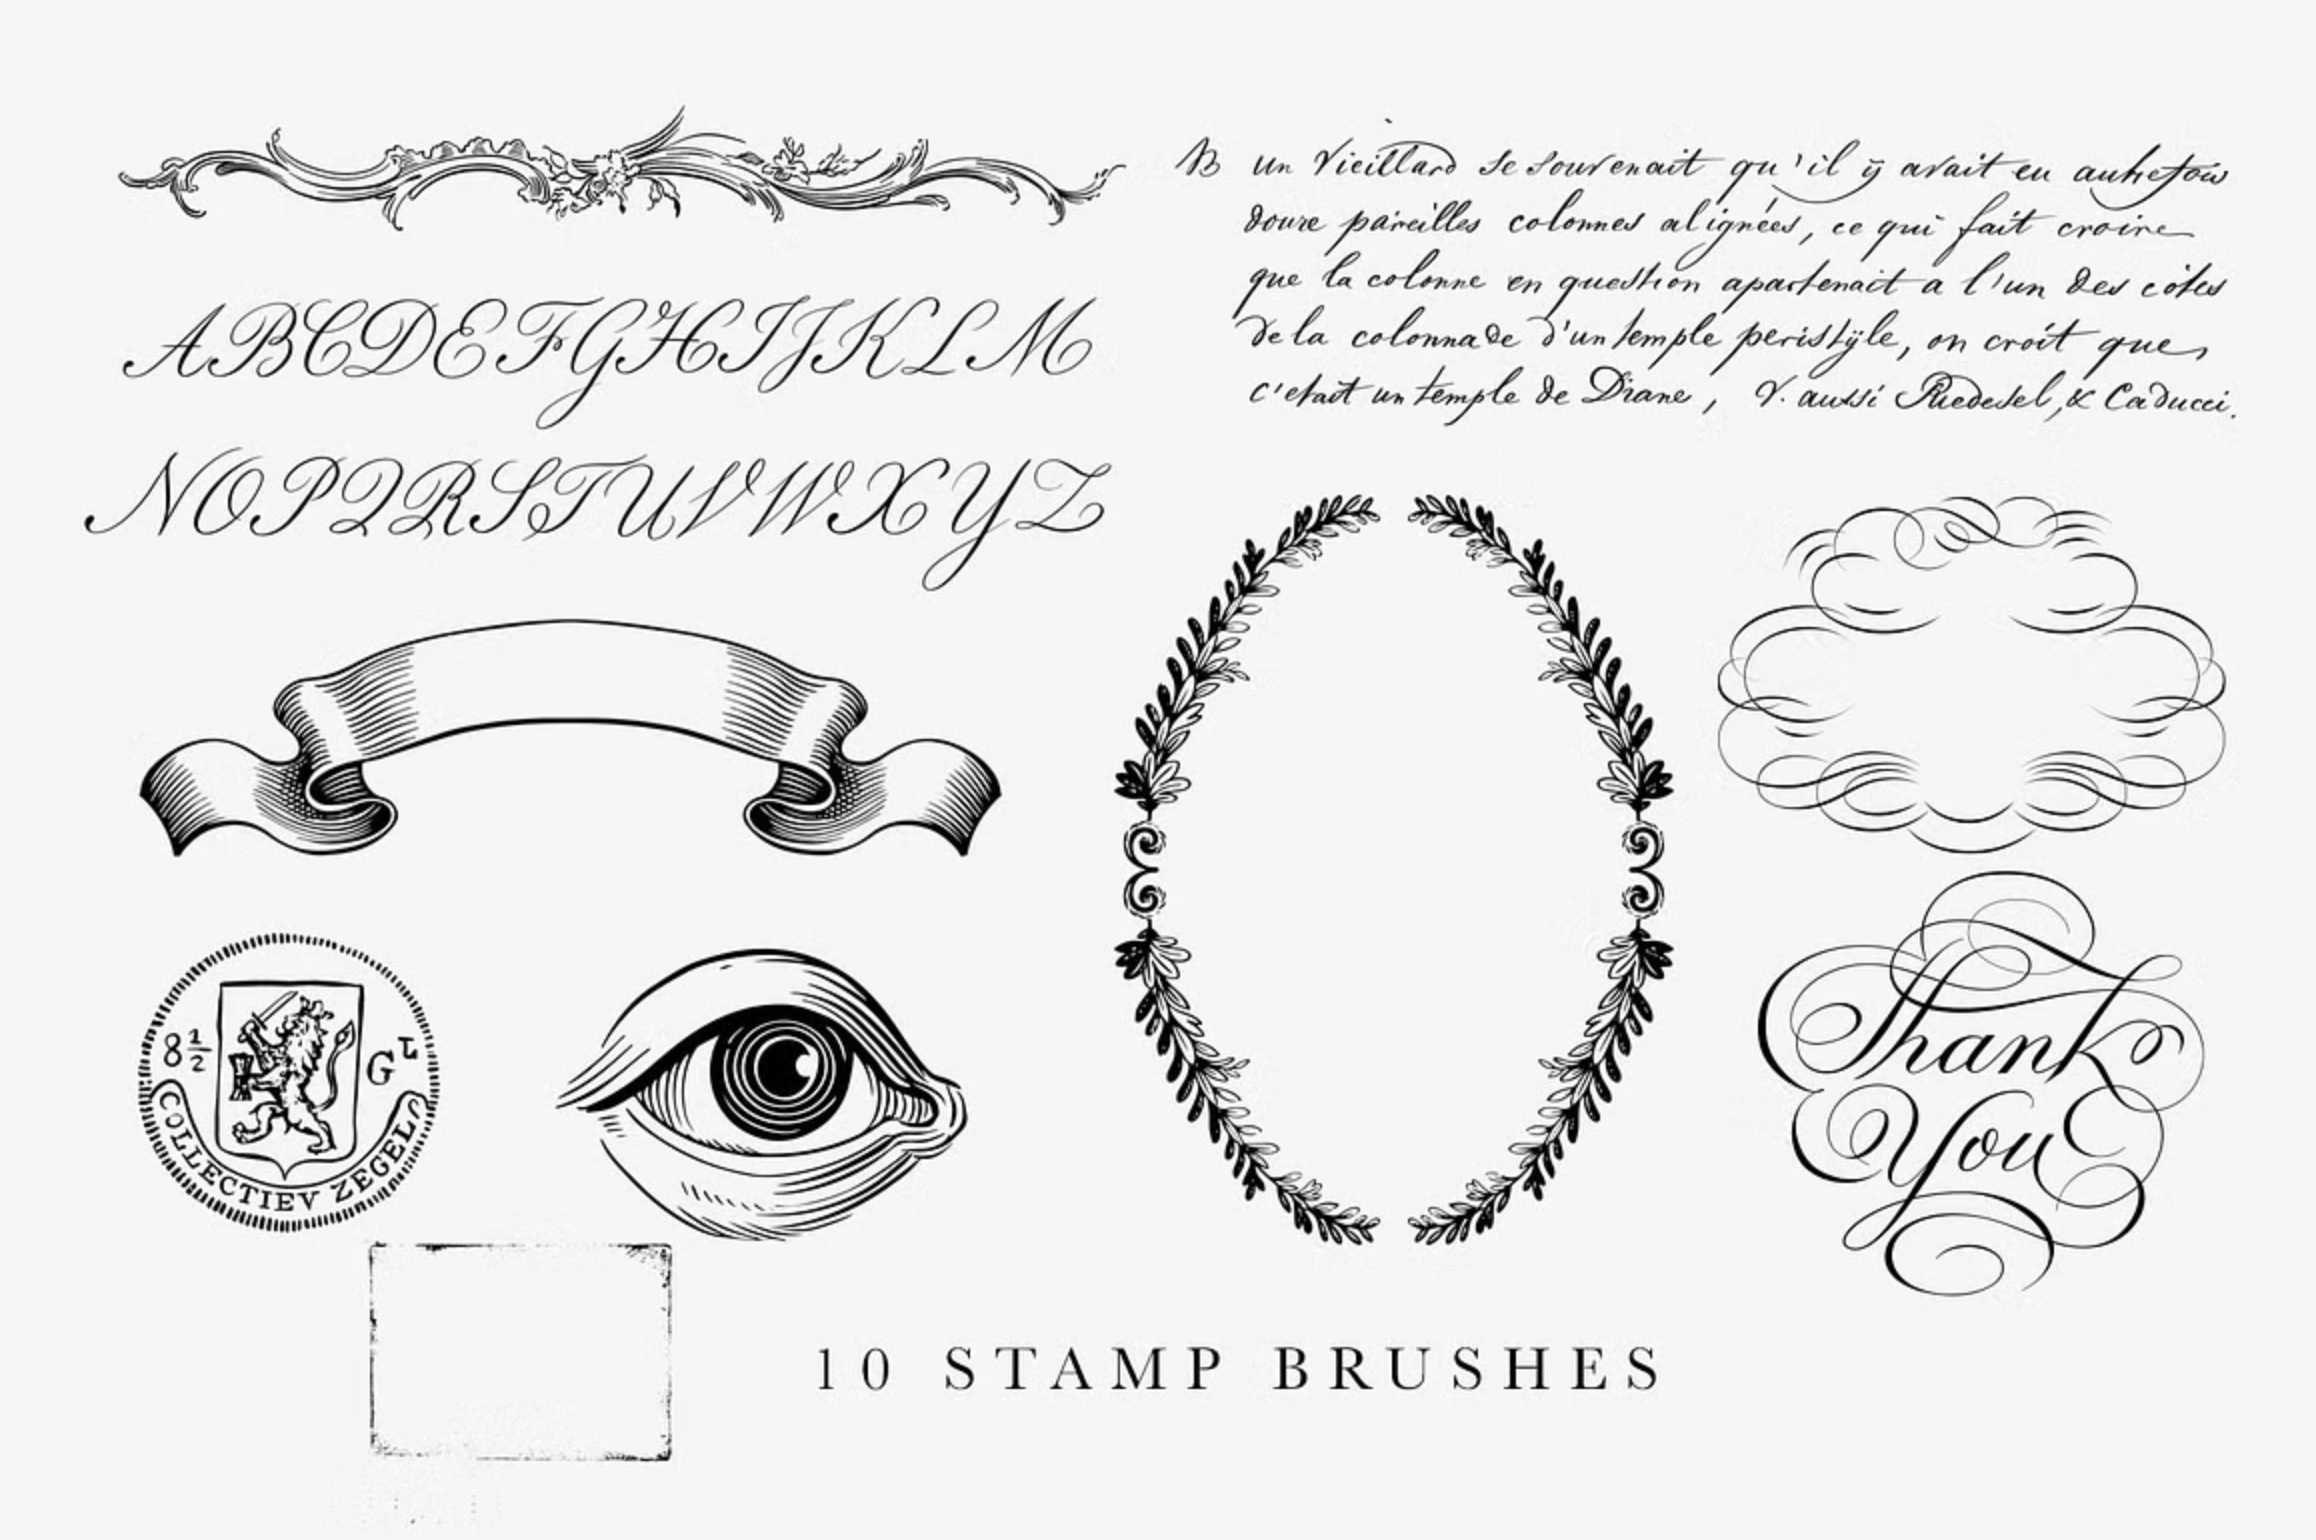 NB un vieillard se souvenait qu'il ÿ avait eu autrefois
douze pareilles colonnes alignées, ce qui fait croire
que la colonne en question apartenait a l'un des côtes
de la colonnade d'un temple peristÿle, on croit que
c'etait un temple de Diane, V. aussi Riedesel, & Caducci.
ABCDEFGHIJKLM
NOPQRSTUVWXYZ
8½ GL
COLLECTIEV ZEGEL
Thank
You
10 STAMP BRUSHES